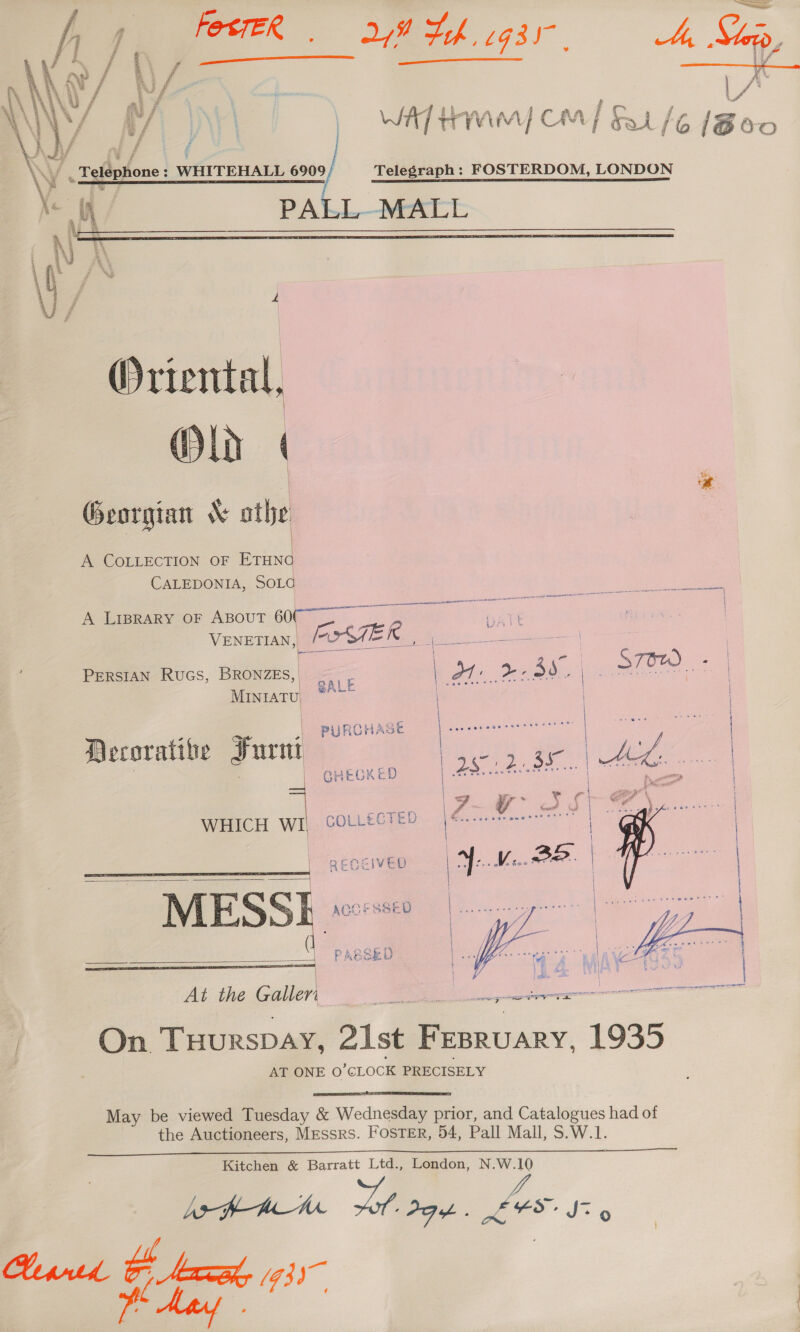 FOSTER . 21st Feb. 1935. Mr Stow,
WA/HMM/CM/Sal/6 1800
Telephone: WHITEHALL 6909 Telegraph: FOSTERDOM, LONDON
PALL MALL
Oriental,
Old
Georgian & othe
A COLLECTION OF ETHNO
CALEDONIA, SOLO
A LIBRARY OF ABOUT 60
VENETIAN,
PERSIAN RUGS, BRONZES,
MINIATU
Decorative Furni
WHICH WI
MESSR
FOSTER DATE
SALE 21. 2. 35. STOW.
PURCHASE
CHECKED 25.2.35
COLLECTED
RECEIVED 7. V. 35.
ACCESSED
PASSED 14 MAY 1935
At the Galleri
On THURSDAY, 21st FEBRUARY, 1935
AT ONE O'CLOCK PRECISELY
May be viewed Tuesday & Wednesday prior, and Catalogues had of
the Auctioneers, MESSRS. FOSTER, 54, Pall Mall, S.W.1.
Kitchen & Barratt Ltd., London, N.W.10
Fol. 294. £45. 5. 0
Cleared 6th March 1935
7th May.